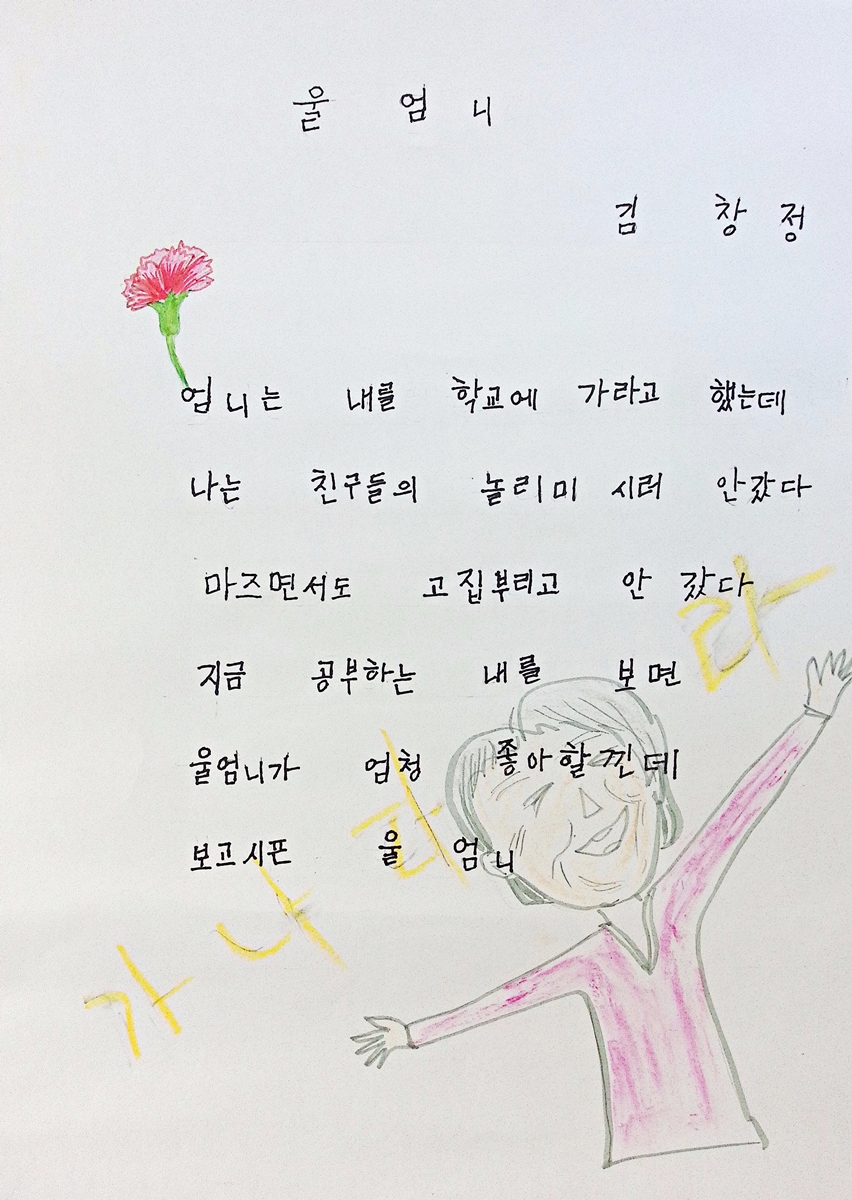 울 엄 니
김 창 정
엄니는 내를 학교에 가라고 했는데
나는 친구들의 놀리미 시러 안갔다
마즈면서도 고집부리고 안 갔다
지금 공부하는 내를 보면
울엄니가 엄청 좋아할낀데
보고시픈 울 엄니
가 나 다 라